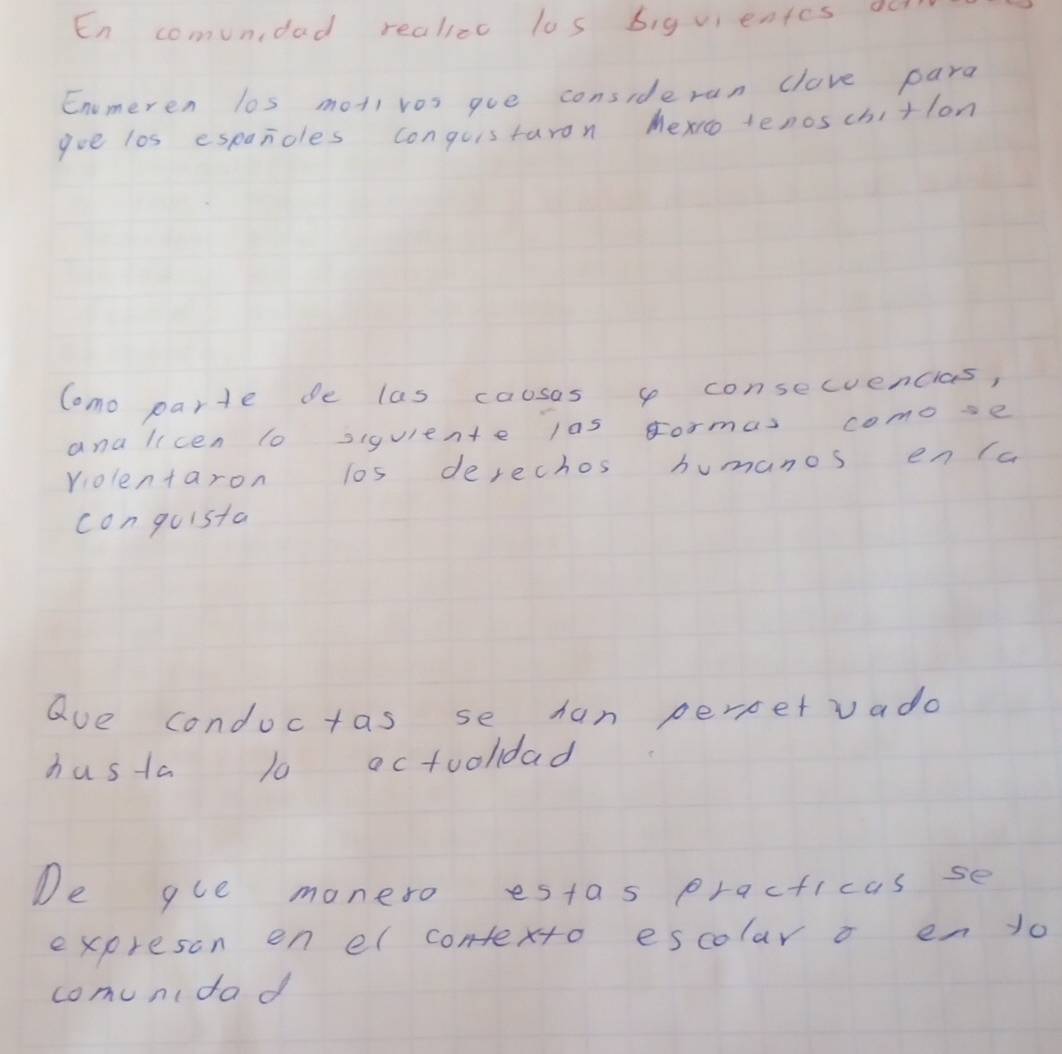 En comunidad realice las siguientes
Enumeren los motivos que consideran clave para
que los españoles conquistaron Mexico tenoschitlan
Como parte de las causas y consecuencias,
analicen lo siguiente las formas como se
violentaron los derechos humanos en la
conquista
Que conductas se han perpetuado
hasta la actualidad
De que manera estas practicas se
expresan en el contexto escolar o en la
comunidad